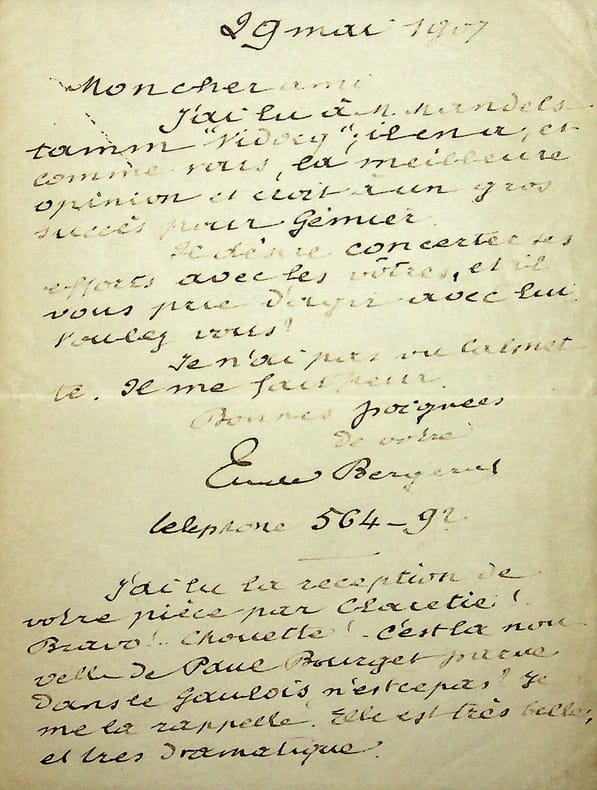 29 mai 1907
Mon cher ami
J'ai lu à M. Mandels
tamm "Vidocq"; il en a, et
comme vous, la meilleure
opinion et croit à un gros
succès pour Gémier.
Il désire concerter ses
efforts avec les vôtres, et il
vous prie d'agir avec lui.
Voulez vous?
Je n'ai pas vu Calmet
te. Il me fait peur.
Bonnes poignees
de votre
Emile Bergerat
telephone 564-92
J'ai lu la reception de
votre pièce par Claretie!
Bravo! Chouette! C'est la nou
velle de Paul Bourget parue
dans le Gaulois n'est ce pas? Je
me la rappelle. Elle est très belle,
et tres dramatique.